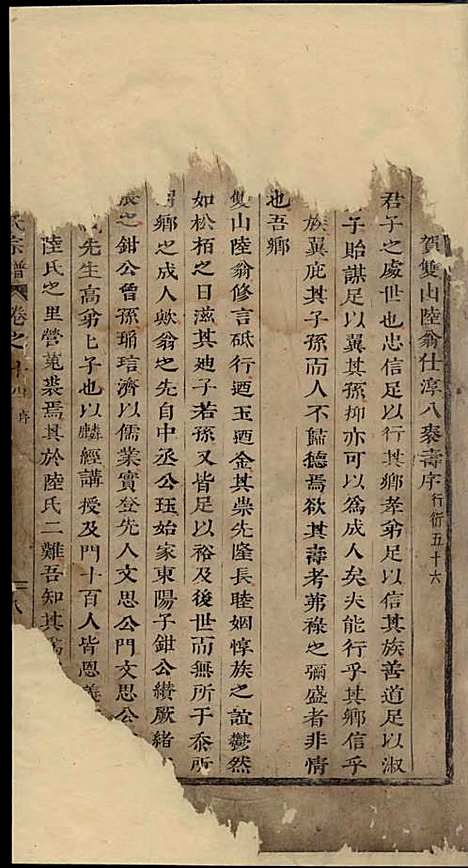 賀雙山陸翁仕淳八秦壽序 行衍五十六
君子之處世也忠信足以行其鄉孝弟足以信其族善道足以淑
子貽謀足以翼其孫抑亦可以為成人矣夫能行乎其鄉信乎
族翼庇其子孫而人不歸德焉欲其壽考茀祿之彌盛者非情
也吾鄉
雙山陸翁修言砥行迺玉迺金其崇先隆長睦姻惇族之誼鬱然
如松栢之日滋其迪子若孫又皆足以裕及後世而無所于忝所
鄉之成人歟翁之先自中丞公珏始家東陽子鉗公纘厥緒
之鉗公曾孫珮琂濟以儒業實登先人文思公門文思公
先生高弟上子也以麟經講授及門十百人皆恩義
陸氏之里營菟裘焉其於陸氏二難吾知其為
氏宗譜 卷之十四 序